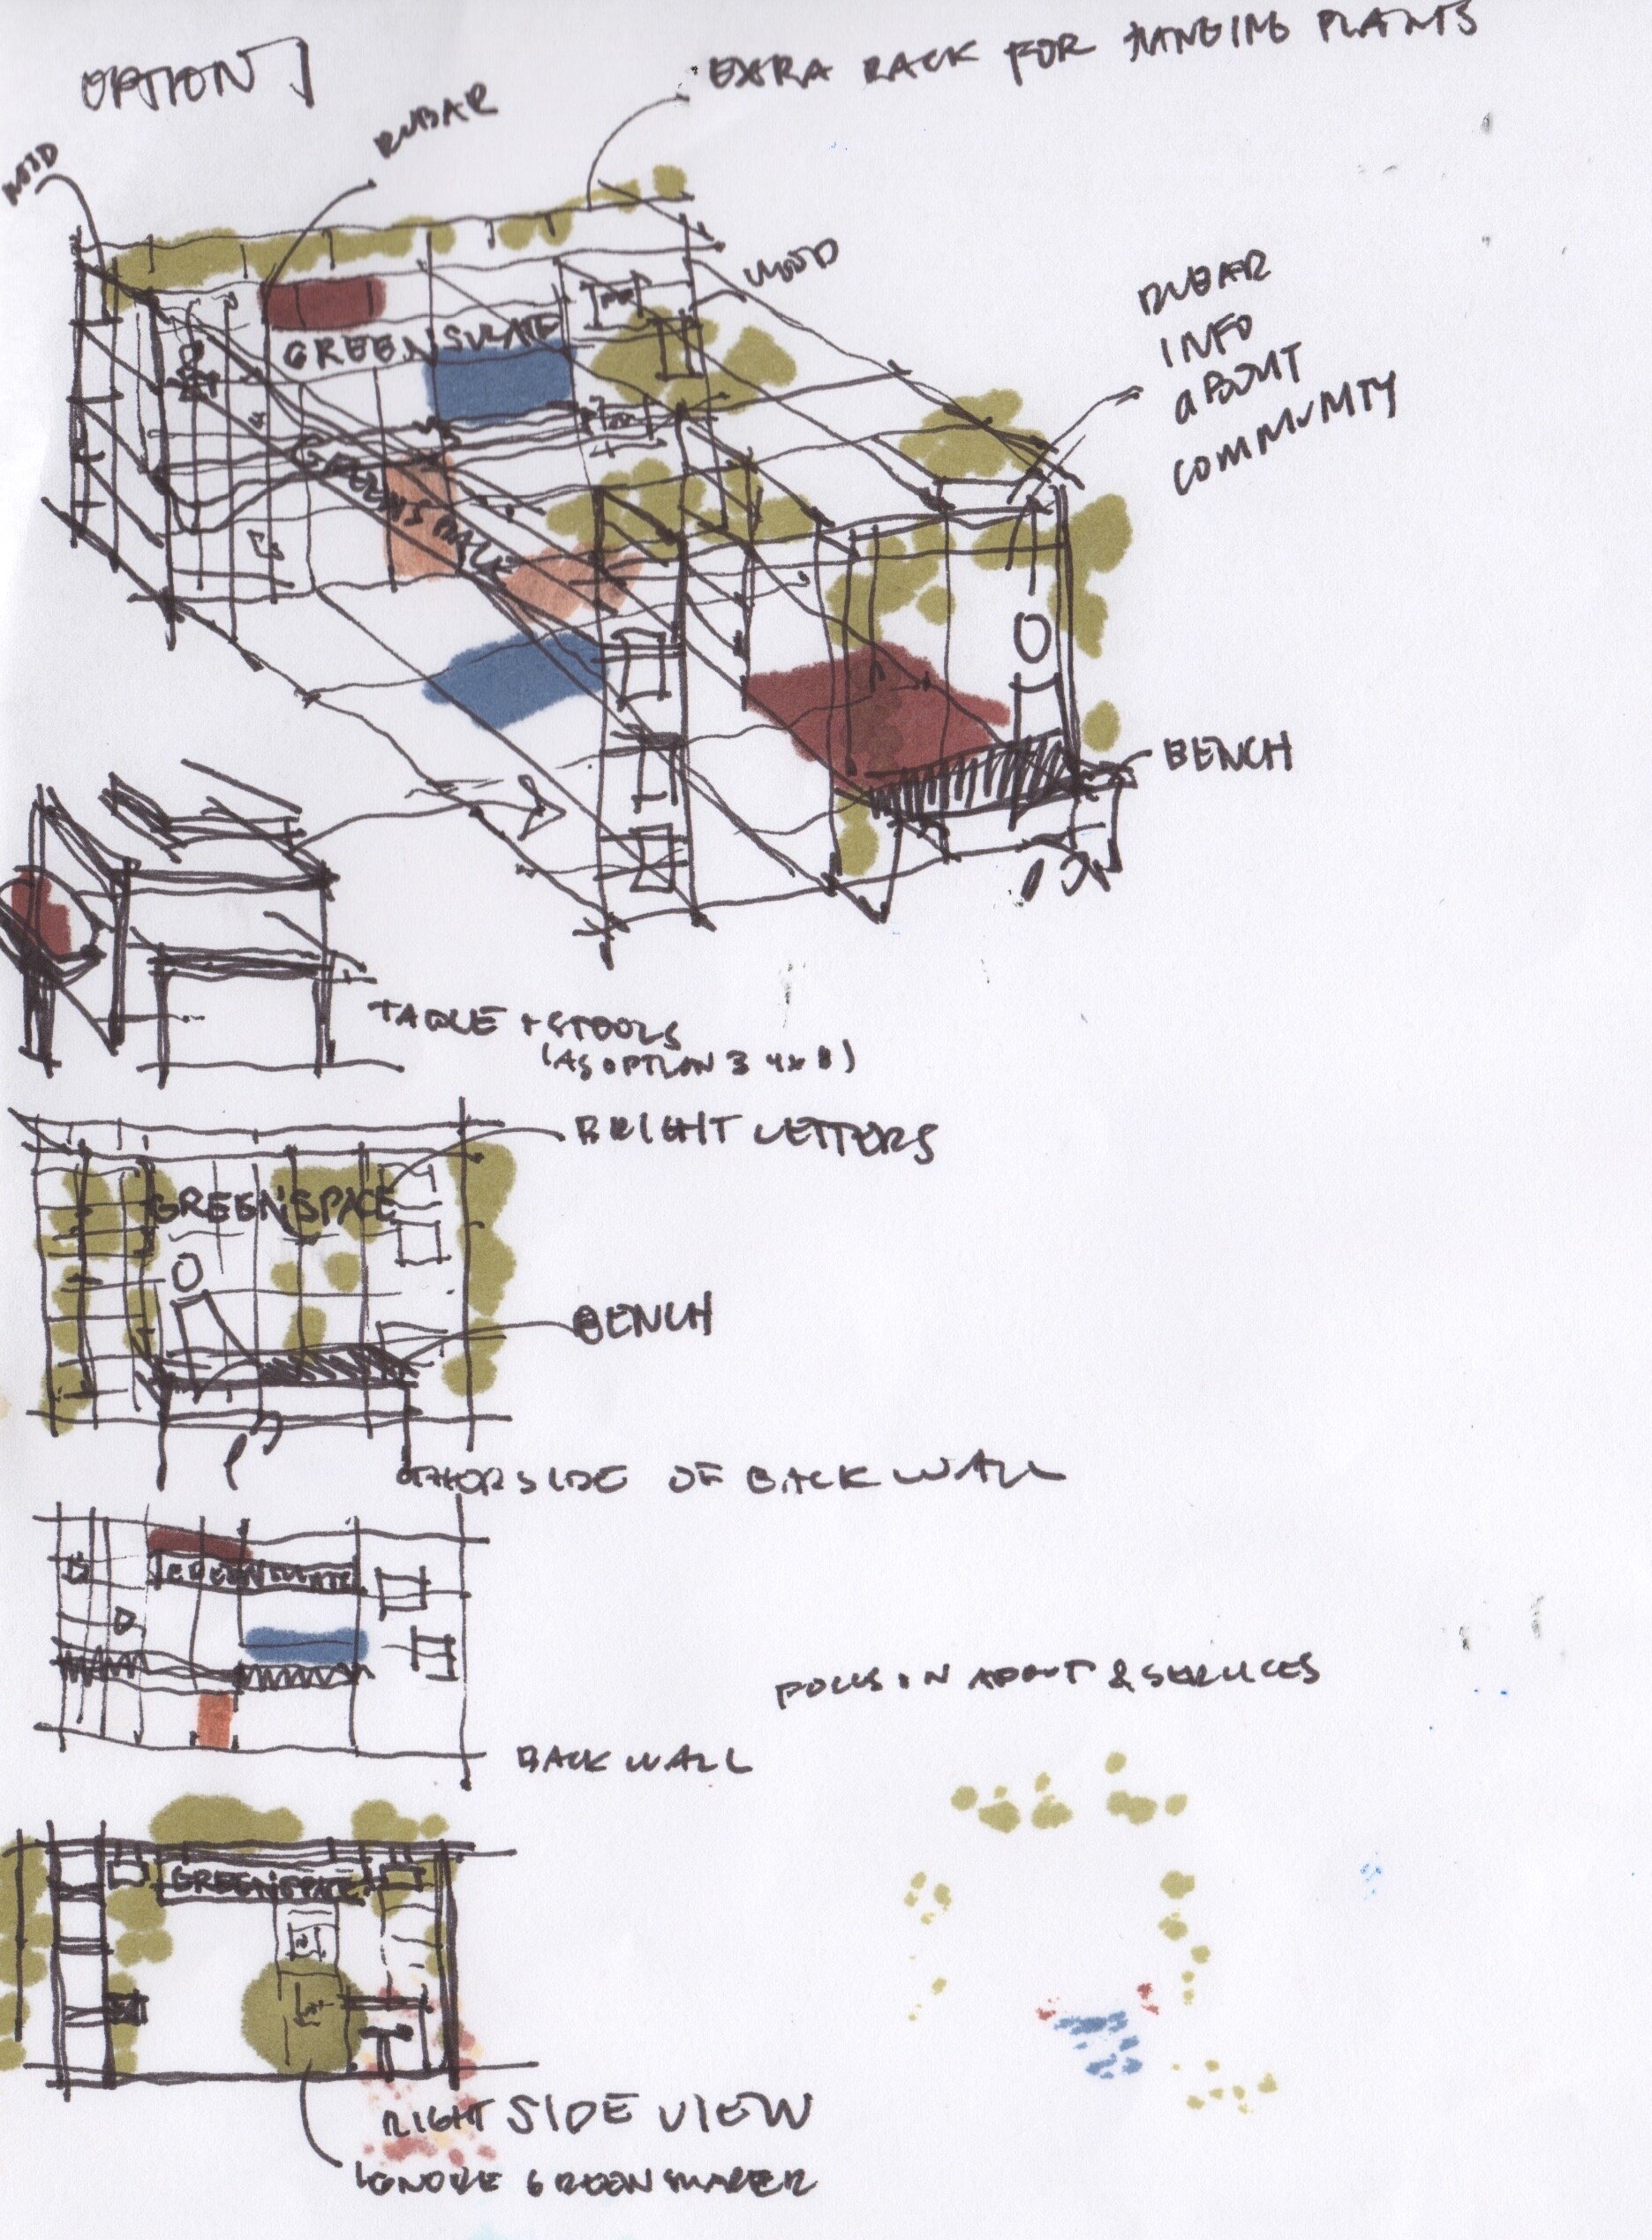 OPTION 1
EXTRA RACK FOR HANGING PLANTS
REBAR
WOOD
WOOD
REBAR
INFO
ABOUT
COMMUNITY
GREENSPACE
GREENSPACE
BENCH
TABLE + STOOLS
(AS OPTION 3 4x8)
BRIGHT LETTERS
GREENSPACE
BENCH
OTHERSIDE OF BACK WALL
GREENSPACE
FOCUS ON ABOUT & SERVICES
BACK WALL
GREENSPACE
RIGHT SIDE VIEW
IGNORE GREEN SMARER